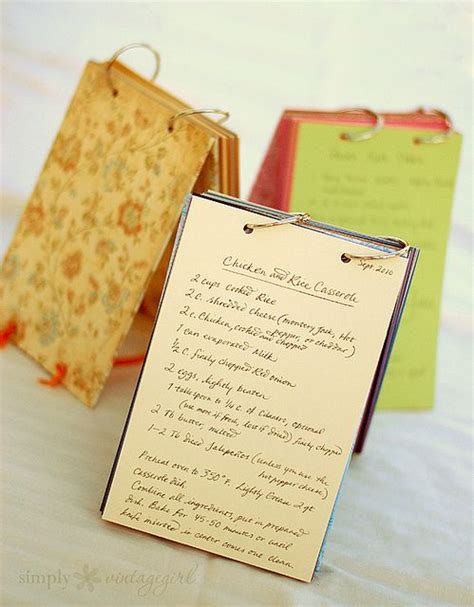 Sept 2010
Chicken and Rice Casserole
2 cups cooked Rice
2 c. shredded cheese (monterey Jack, Hot
pepper, or cheddar)
2 c. Chicken, cooked and chopped
1 can evaporated Milk
1/2 c. finely chopped Red onion
2 eggs, lightly beaten
1 tablespoon to 1/4 c. of Cilantro, optional
(use more if fresh, less if dried) finely chopped
2 Tb butter, melted
1-2 Tb diced Jalapeños (unless you use the
hot pepper cheese)
Preheat oven to 350°F. Lightly Grease 2 qt
Casserole dish.
Combine all ingredients, put in prepared
dish. Bake for 45-50 minutes or until
knife inserted in center comes out clean.
simply vintagegirl